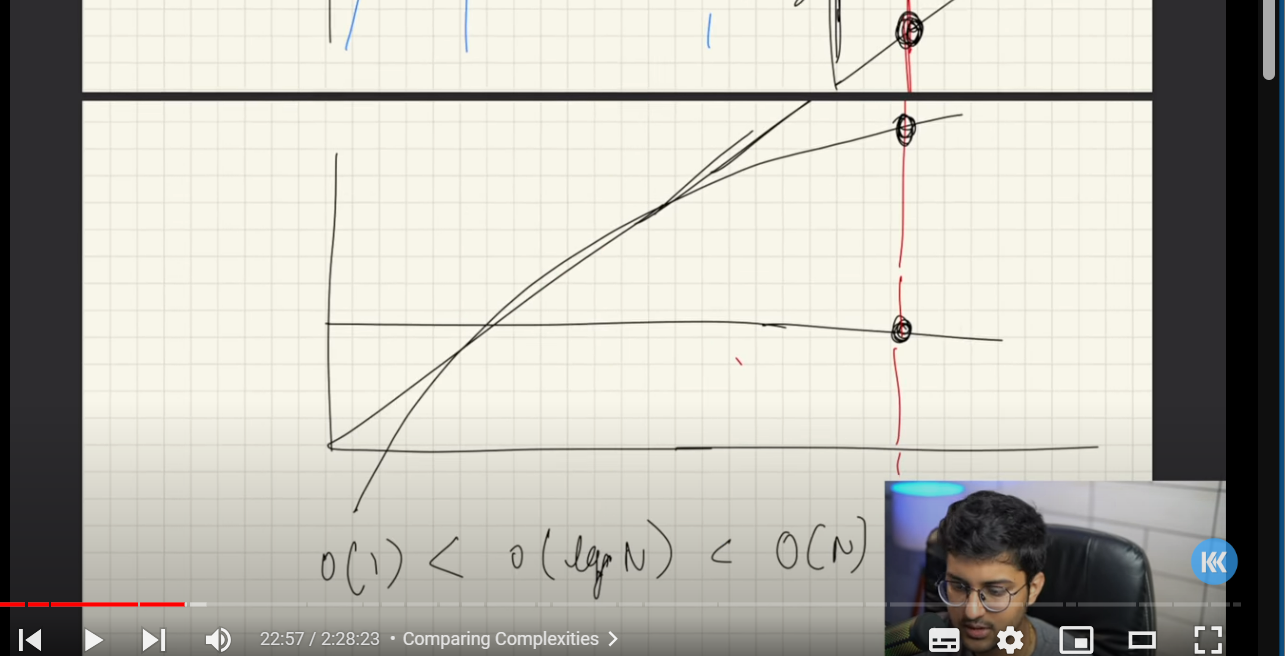 O(1) < O(log N) < O(N)
22:57 / 2:28:23 • Comparing Complexities >